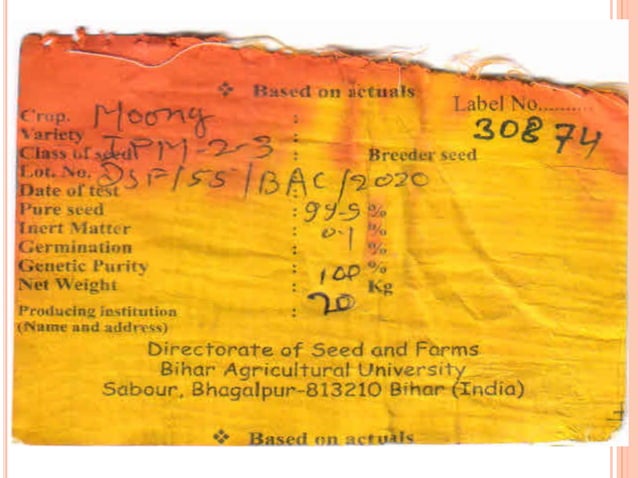 ❖ Based on actuals
Label No..........
30874
Crop. : Moong
Variety : IPM-2-3
Class of seed : Breeder seed
Lot. No. DSF/55/BAC/2020
Date of test
Pure seed : 99.9 %
Inert Matter : 0.1 %
Germination : %
Genetic Purity : 100 %
Net Weight : 20 Kg
Producing institution :
(Name and address)
Directorate of Seed and Farms
Bihar Agricultural University
Sabour, Bhagalpur-813210 Bihar (India)
❖ Based on actuals